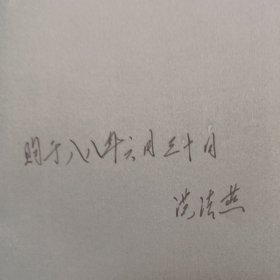 购于八八年六月三十日
洪清燕